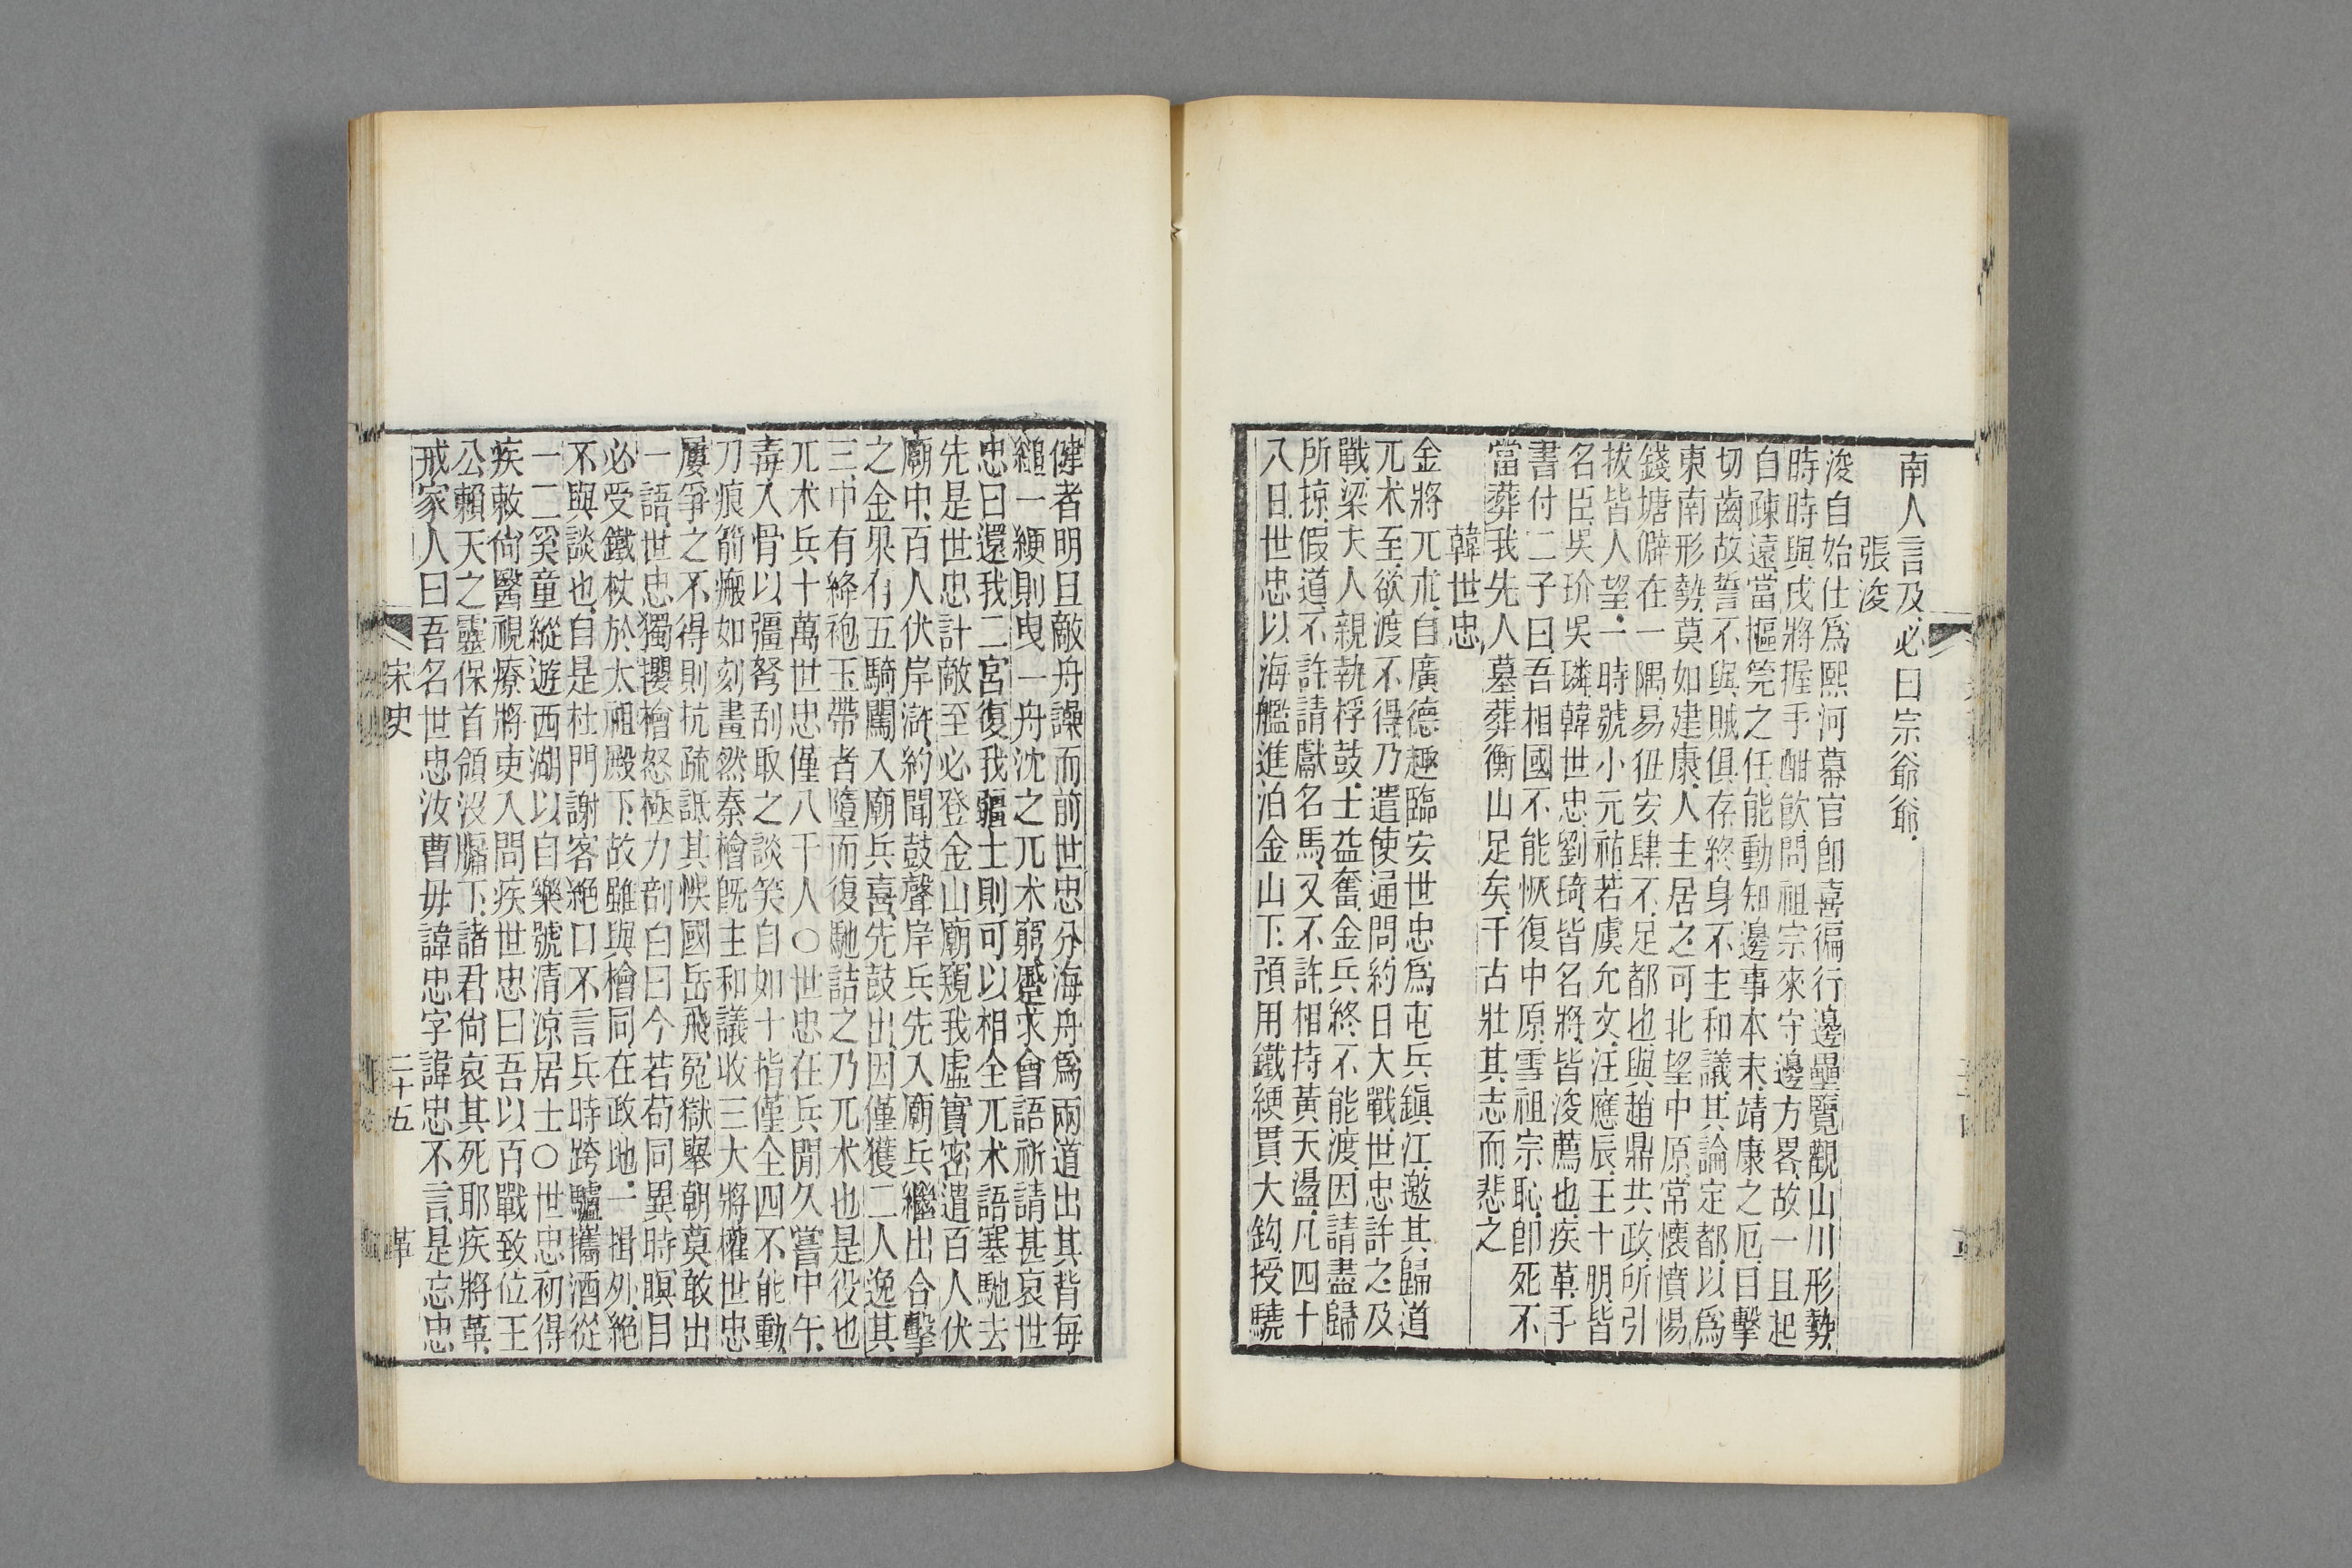 南人言及必曰宗爺爺
張浚
浚自始仕爲熙河幕官卽喜徧行邊壘覽觀山川形勢
時時與戍將握手酣飮問祖宗來守邊方畧故一旦起
自疎遠當樞筦之任能動知邊事本末靖康之厄目擊
切齒故誓不與賊俱存終身不主和議其論定都以爲
東南形勢莫如建康人主居之可北望中原常懷憤惕
錢塘僻在一隅易狃安肆不足都也與趙鼎共政所引
拔皆人望一時號小元祐若虞允文汪應辰王十朋皆
名臣吳玠吳璘韓世忠劉琦皆名將皆浚薦也疾革手
書付二子曰吾相國不能恢復中原雪祖宗恥卽死不
當葬我先人墓葬衡山足矣千古壯其志而悲之
韓世忠
金將兀朮自廣德趣臨安世忠爲屯兵鎭江邀其歸道
兀朮至欲渡不得乃遣使通問約日大戰世忠許之及
戰梁夫人親執桴鼓士益奮金兵終不能渡因請盡歸
所掠假道不許請獻名馬又不許相持黃天盪凡四十
八日世忠以海艦進泊金山下預用鐵綆貫大鈎授驍
健者明旦敵舟譟而前世忠分海舟爲兩道出其背每
縋一綆則曳一舟沈之兀朮窮蹙求會語祈請甚哀世
忠曰還我二宮復我疆土則可以相全兀朮語塞馳去
先是世忠計敵至必登金山廟窺我虛實密遣百人伏
廟中百人伏岸滸約聞鼓聲岸兵先入廟兵繼出合擊
之金果有五騎闖入廟兵喜先鼓出因僅獲二人逸其
三中有絳袍玉帶者墮而復馳詰之乃兀朮也是役也
兀朮兵十萬世忠僅八千人〇世忠在兵閒久嘗中
毒入骨以彊弩刮取之談笑自如十指僅全四不能動
刀痕箭瘢如刻畫然秦檜旣主和議收三大將權世忠
屢爭之不得則抗疏詆其悞國岳飛寃獄舉朝莫敢出
一語世忠獨攖檜怒極力剖白曰今若苟同異時瞑目
必受鐵杖於太祖殿下故雖與檜同在政地一揖外絕
不與談也自是杜門謝客絕口不言兵時跨驢攜酒從
一二奚童縱遊西湖以自樂號淸涼居士〇世忠初得
疾敕尙醫視療將吏入問疾世忠曰吾以百戰致位王
公賴天之靈保首領沒牖下諸君尙哀其死耶疾將革
戒家人曰吾名世忠汝曹毋諱忠字諱忠不言是忘忠
宋史 二十五 革